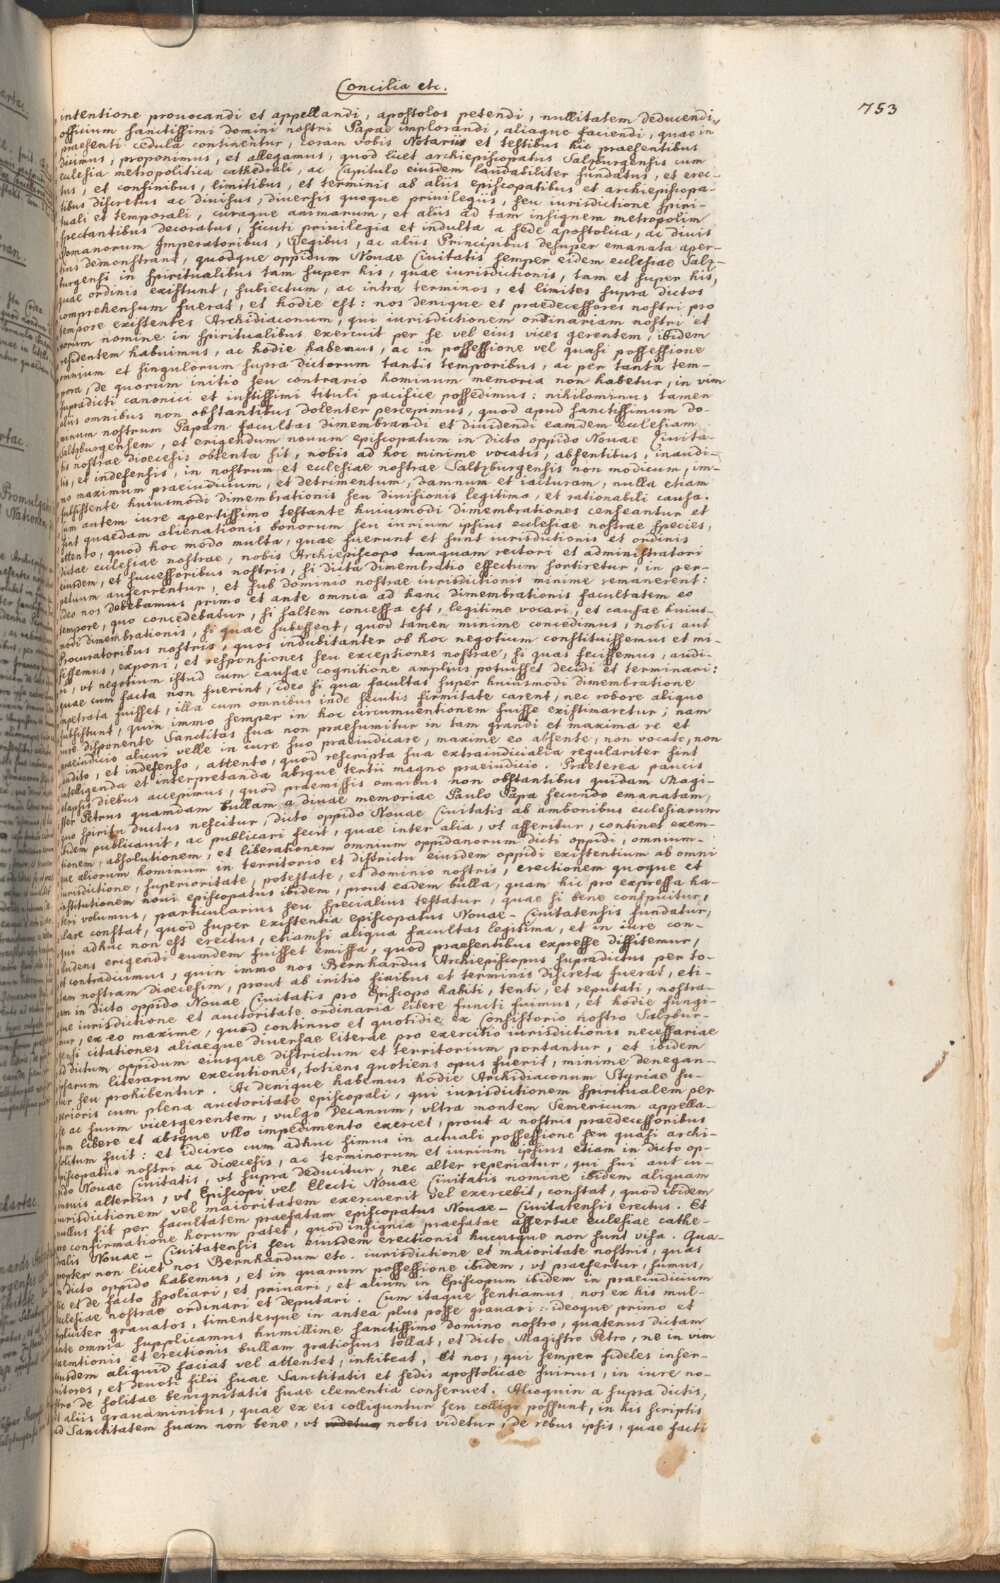 Concilia etc.
753
intentione prouocandi et appellandi, apostolos petendi, nullitatem deducendi,
officium sanctissimi domini nostri Papae implorandi, aliaque faciendi, quae in
praesenti cedula continentur, coram vobis Notariis et testibus hic praesentibus
dicimus, proponimus, et allegamus, quod licet archiepiscopatus Salzburgensis cum
ecclesia metropolitica cathedrali, ac Capitulo eiusdem laudabiliter fundatus, et erec-
tus, et confinibus, limitibus, et terminis ab aliis episcopatibus et archiepiscopa-
tibus discretus ac diuisus, diuersis quoque priuilegiis, seu iurisdictione spiri-
tuali et temporali, curaque animarum, et aliis ad tam insignem metropolim
spectantibus decoratus, sicuti priuilegia et indulta a sede apostolica, ac diuis
Romanorum Imperatoribus, Regibus, ac aliis Principibus desuper emanata aper-
tius demonstrant, quodque oppidum Nouae Ciuitatis semper eidem ecclesiae Salz-
burgensi in spiritualibus tam super his, quae iurisdictionis, tam et super his,
quae ordinis existunt, subiectum, ac intra terminos, et limites supra dictos
comprehensum fuerat, et hodie est: nos denique et praedecessores nostri pro
tempore existentes Archidiaconum, qui iurisdictionem ordinariam nostri et
eorum nomine in spiritualibus exercuit per se vel eius vices gerentem, ibidem
residentem habuimus, ac hodie habemus, ac in possessione vel quasi possessione
omnium et singulorum supra dictorum tantis temporibus, ac per tanta tem-
pora, de quorum initio seu contrario hominum memoria non habetur, in vim
supradicti canonici et iustissimi tituli pacifice possedimus: nihilominus tamen
aliis omnibus non obstantibus dolenter percepimus, quod apud sanctissimum do-
minum nostrum Papam facultas dimembrandi et diuidendi eamdem ecclesiam
Saltzburgensem, et erigendum nouum episcopatum in dicto oppido Nouae Ciuita-
tis nostrae dioecesis obtenta sit, nobis ad hoc minime vocatis, absentibus, inaudi-
tis, et indefensis, in nostrum et ecclesiae nostrae Saltzburgensis non modicum, im-
mo maximum praeiudicium, et detrimentum, damnum et iacturam, nulla etiam
subsistente huiusmodi dimembrationis seu diuisionis legitima, et rationabili causa.
Cum autem iure apertissimo testante huiusmodi dimembrationes censeantur et
sint quaedam alienationis bonorum seu iurium ipsius ecclesiae nostrae species,
attento, quod hoc modo multa, quae fuerunt et sunt iurisdictionis et ordinis
dictae ecclesiae nostrae, nobis Archiepiscopo tamquam rectori et administratori
eiusdem, et successoribus nostris, si dicta dimembratio effectum sortiretur, in per-
petuum auferrentur, et sub dominio nostrae iurisdictionis minime remanerent:
ideo nos debebamus primo et ante omnia ad hanc dimembrationis facultatem eo
tempore, quo concedebatur, si saltem concessa est, legitime vocari, et causae huius-
modi dimembrationis, si quae subessent, quod tamen minime concedimus, nobis aut
Procuratoribus nostris, quos indubitanter ob hoc negotium constituissemus et mi-
sissemus, exponi, et responsiones seu exceptiones nostrae, si quas fecissemus, audi-
ri, vt negotium istud cum causae cognitione amplius potuisset decidi et terminari:
quae cum facta non fuerint, ideo si qua facultas super huiusmodi dimembratione
impetrata fuisset, illa cum omnibus inde secutis firmitate carent, nec robore aliquo
subsistunt, quin immo semper in hoc circumuentionem fuisse existimaretur; nam
iure disponente Sanctitas sua non praesumitur in tam grandi et maxima re et
praeiudicio alicui velle in iure suo praeiudicare, maxime eo absente, non vocato, non
audito, et indefenso, attento, quod rescripta sua extraiudicialia regulariter sint
intelligenda et interpretanda absque tertii magno praeiudicio. Praeterea paucis
elapsis diebus accepimus, quod praemissis omnibus non obstantibus quidam Magi-
ster Petrus quamdam bullam a diuae memoriae Paulo Papa secundo emanatam,
quo spiritu ductus nescitur, dicto oppido Nouae Ciuitatis ab ambonibus ecclesiarum
ibidem publicauit, ac publicari fecit, quae inter alia, vt asseritur, continet exem-
tionem, absolutionem, et liberationem omnium oppidanorum dicti oppidi, omnium-
que aliorum hominum in territorio et districtu eiusdem oppidi existentium ab omni
iurisdictione, superioritate, potestate, et dominio nostris, erectionem quoque et
institutionem noui episcopatus ibidem, prout eadem bulla, quam hic pro expressa ha-
beri volumus, particularius seu specialius testatur, quae si bene conspicitur,
clare constat, quod super existentia episcopatus Nouae-Ciuitatensis fundatur,
qui adhuc non est erectus, etiamsi aliqua facultas legitima, et in iure con-
cludens erigendi eumdem fuisset emissa, quod praesentibus expresse diffitemur,
et contradicimus, quin immo nos Bernhardus Archiepiscopus supradictus per to-
tam nostram dioecesim, prout ab initio finibus et terminis discreta fuerat, eti-
am in dicto oppido Nouae Ciuitatis pro Episcopo habiti, tenti, et reputati, nostra-
que iurisdictione et auctoritate ordinaria libere functi fuimus, et hodie fungi-
mur, ex eo maxime, quod continuo et quotidie ex Consistorio nostro Salzbur-
gensi citationes aliaeque diuersae literae pro exercitio iurisdictionis necessariae
ad dictum oppidum eiusque districtum et territorium portantur, et ibidem
ipsarum literarum executiones, totiens quotiens opus fuerit, minime denegan-
tur seu prohibentur. Ac denique habemus hodie Archidiaconum Styriae su-
perioris cum plena auctoritate episcopali, qui iurisdictionem spiritualem per
se ac suum vicesgerentem, vulgo Decanum, vltra montem Semericum appella-
tum libere et absque vllo impedimento exercet, prout a nostris praedecessoribus
solitum fuit: et idcirco cum adhuc simus in actuali possessione seu quasi archi-
episcopatus nostri ac dioecesis, ac terminorum et iurium ipsius etiam in dicto op-
pido Nouae Ciuitatis, vt supra deducitur, nec alter reperiatur, qui sui aut cu-
iusuis alterius, vt Episcopi vel Electi Nouae Ciuitatis nomine ibidem aliquam
iurisdictionem vel maioritatem exercuerit vel exercebit, constat, quod ibidem
nullus sit per facultatem praefatam episcopatus Nouae-Ciuitatensis erectus. Et
pro confirmatione horum patet, quod insignia praefatae assertae ecclesiae cathe-
dralis Nouae-Ciuitatensis seu eiusdem erectionis hucusque non sunt visa. Qua-
propter non licet nos Bernhardum etc. iurisdictione et maioritate nostris, quas
in dicto oppido habemus, et in quarum possessione ibidem, vt praefertur, sumus,
sic et de facto spoliari, et priuari, et alium in Episcopum ibidem in praeiudicium
ecclesiae nostrae ordinari et deputari. Cum itaque sentiamus, nos ex his mul-
tipliciter grauatos, timentesque in antea plus posse grauari: ideoque primo et
ante omnia supplicamus humillime sanctissimo domino nostro, quatenus dictam
exemtionis et erectionis bullam gratiosius tollat, et dicto Magistro Petro, ne in vim
eiusdem aliquid faciat vel attentet, inhibeat, et nos, qui semper fideles inser-
uitores, et deuoti filii suae Sanctitatis et sedis apostolicae fuimus, in iure no-
stro de solitae benignitatis suae clementia conseruet. Alioquin a supra dictis,
et aliis grauaminibus, quae ex eis colliguntur seu colligi possunt, in his scriptis
ad Sanctitatem suam non bene, vt nobis videtur, de rebus ipsis, quae facti